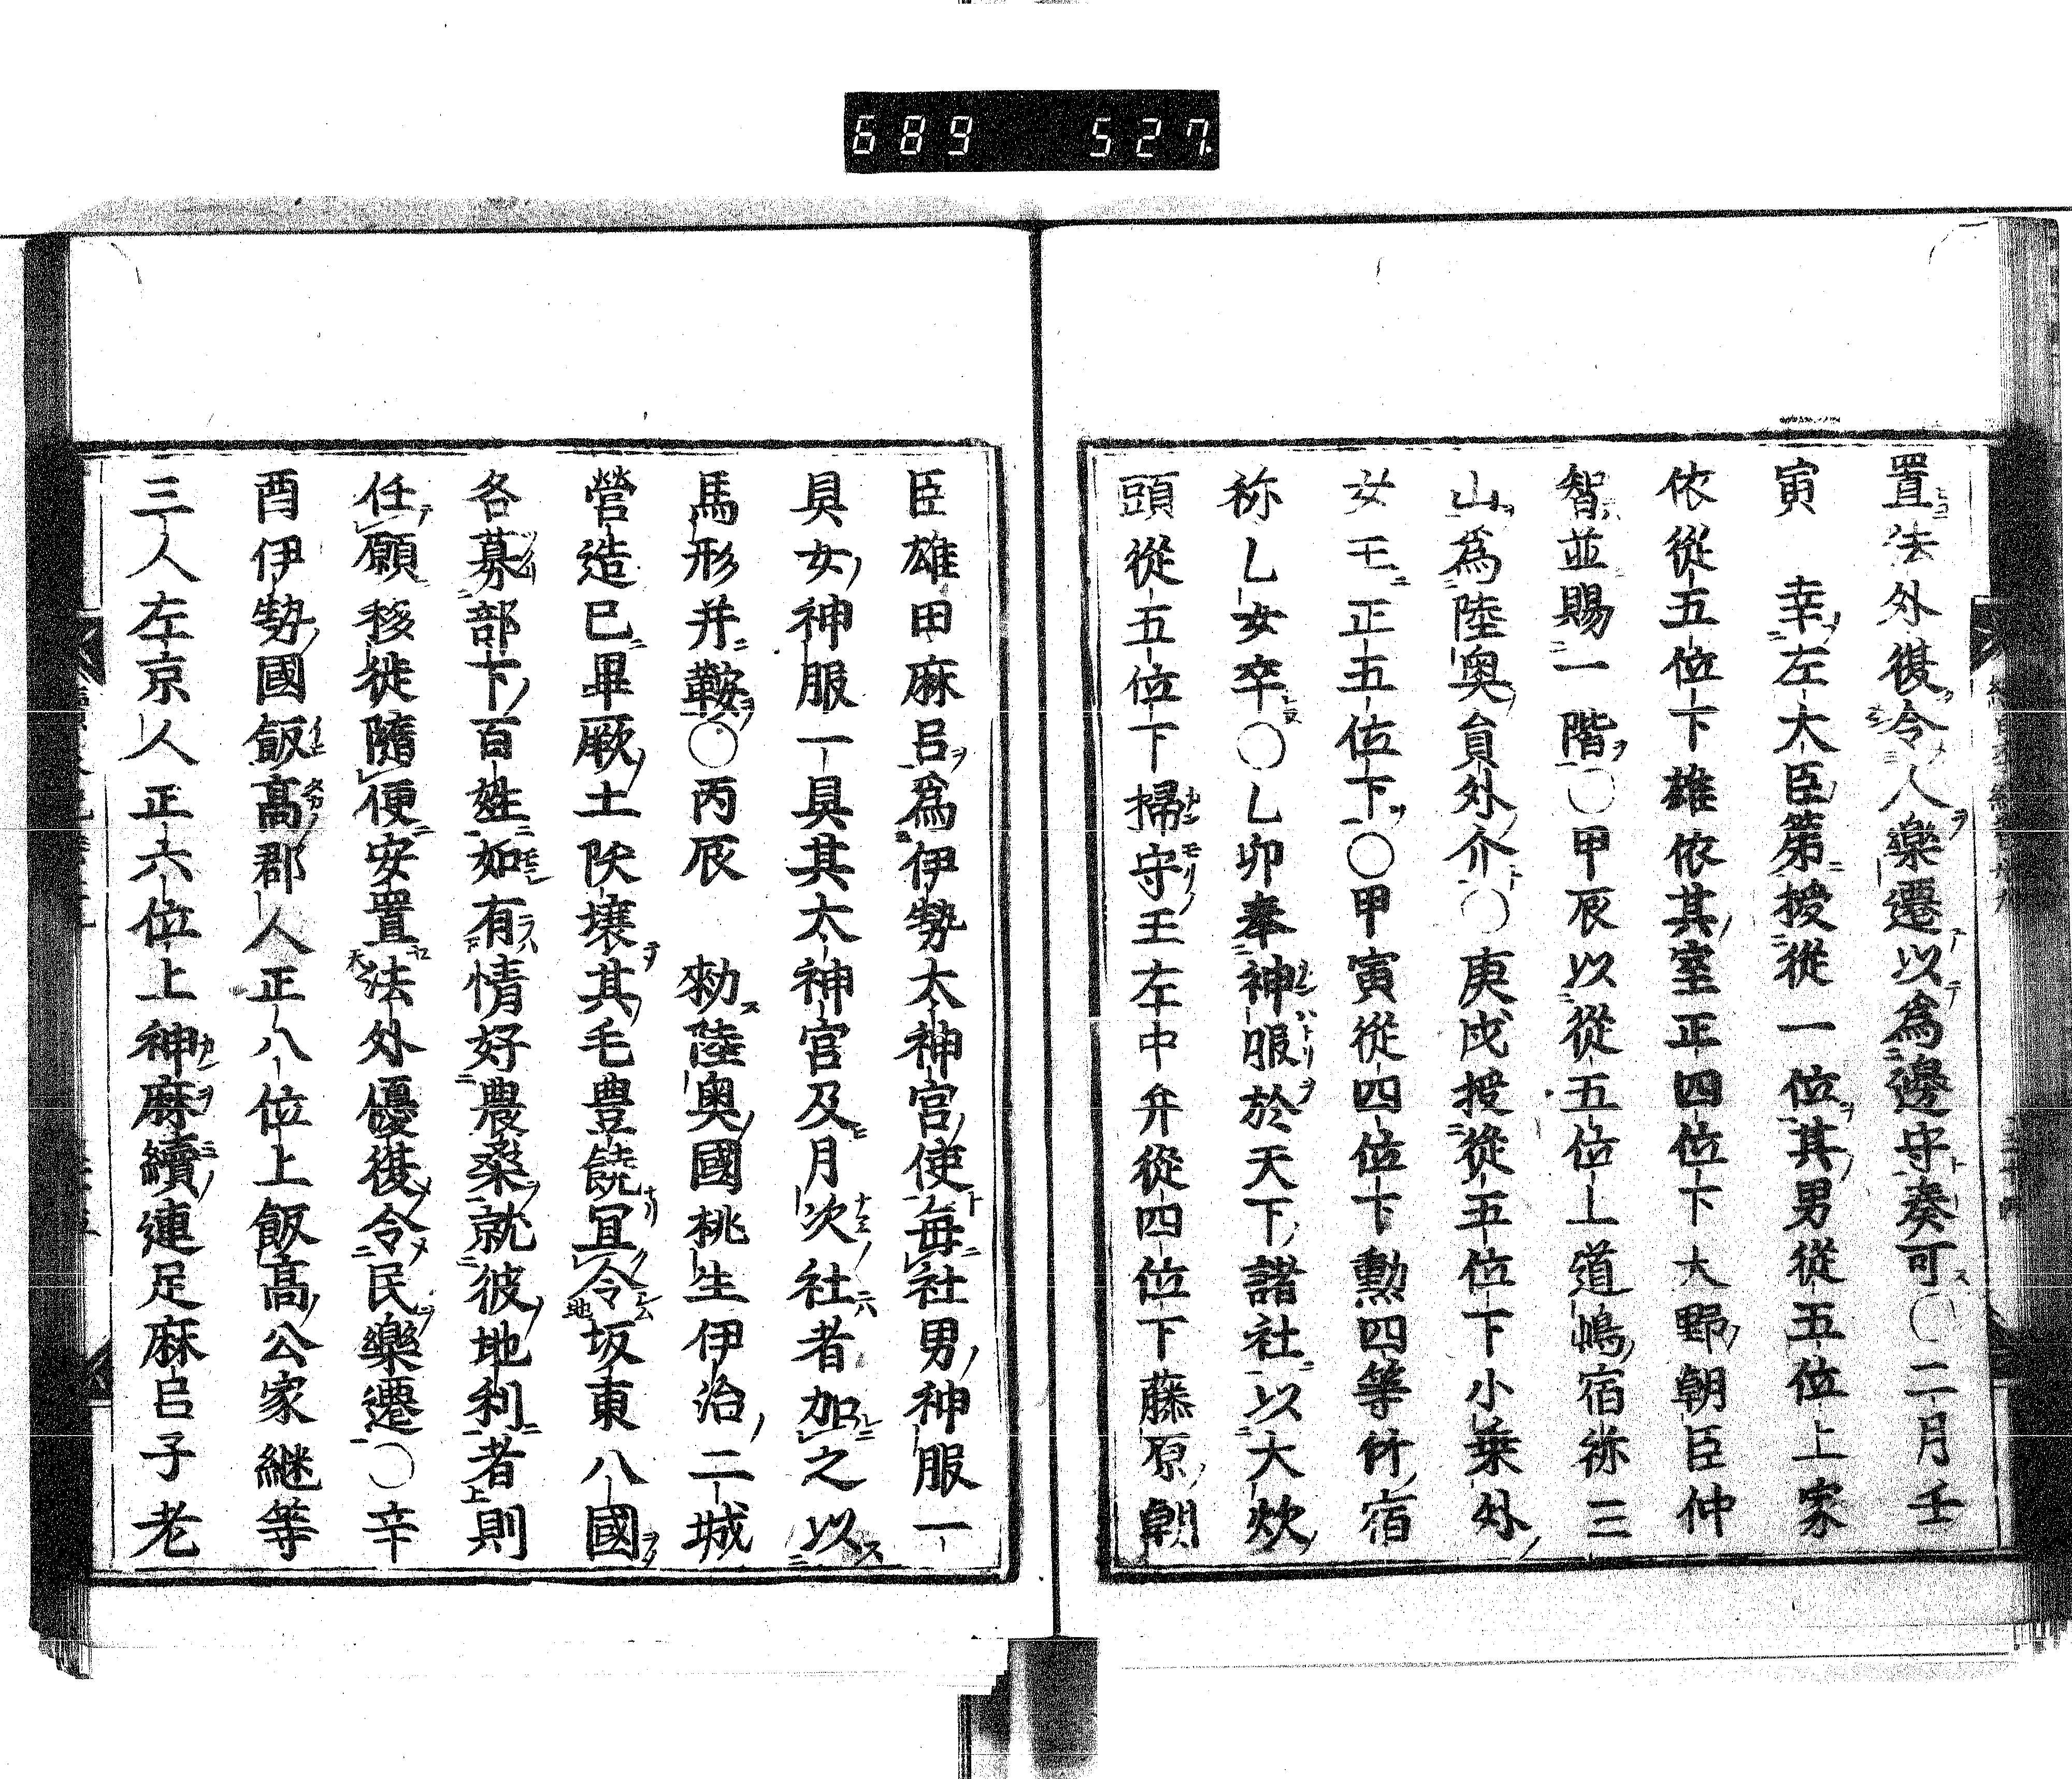 689 527
置法外復令人樂遷以爲邊守奏可〇二月壬
寅 幸左大臣第授從一位其男從五位上家
依從五位下雄依其室正四位下大野朝臣仲
智並賜一階〇甲辰以從五位上道嶋宿祢三
山爲陸奥員外介〇庚戌授從五位下小乗外
女王正五位下〇甲寅從四位下勲四等竹宿
祢乙女卒〇乙卯奉神服於天下諸社以大炊
頭從五位下掃守王左中弁從四位下藤原朝
臣雄田麻呂爲伊勢太神宮使毎社男神服一
具女神服一具其太神宮及月次社者加之以
馬形并鞍〇丙辰 勅陸奥國桃生伊治二城
營造已畢厥土沃壌其毛豊饒冝令坂東八國
各募部下百姓如有情好農桑就彼地利者則
任願移徙隨便安置法外優復令民樂遷〇辛
酉伊勢國飯髙郡人正八位上飯髙公家継等
三人左京人正六位上神麻續連足麻呂子老